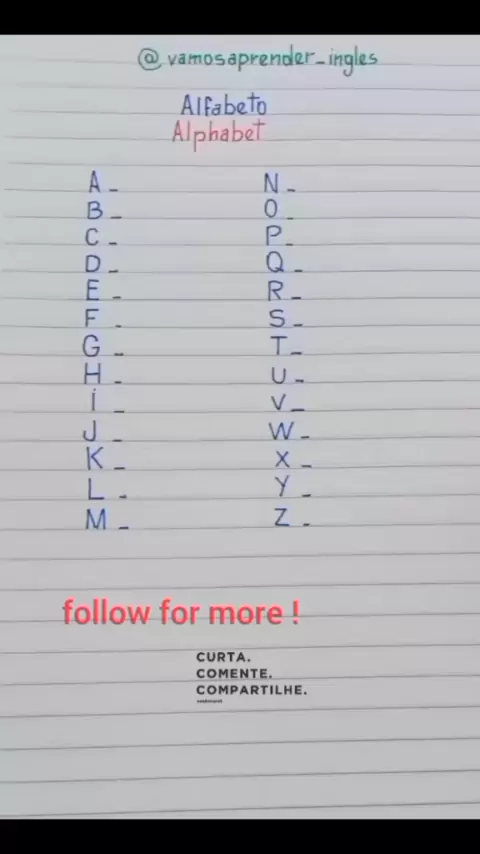 @vamosaprender_ingles
Alfabeto
Alphabet
A -
B -
C -
D -
E -
F -
G -
H -
i -
J -
K -
L -
M -
N -
O -
P -
Q -
R -
S -
T -
U -
V -
W -
X -
Y -
Z -
follow for more !
CURTA.
COMENTE.
COMPARTILHE.